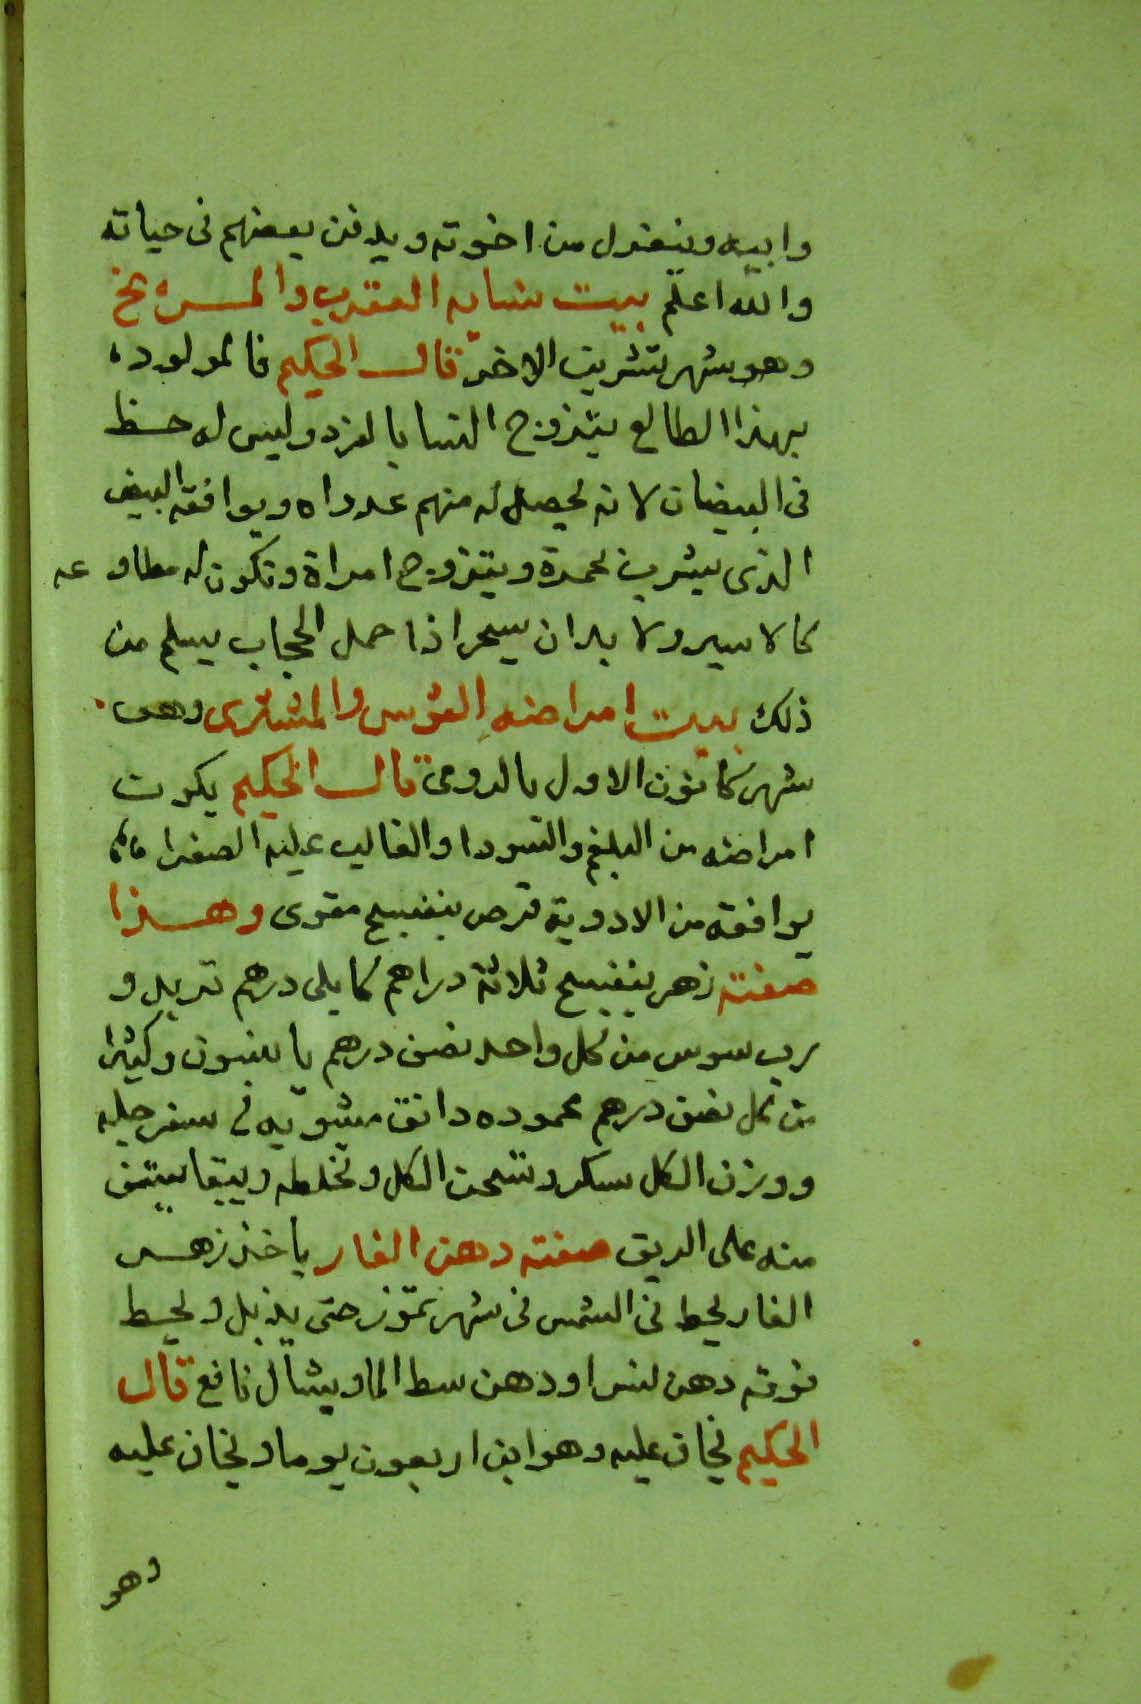 وابيه وينعزل من اخوته ويدفن بعضهم فى حياته
والله اعلم بيت نسايه العقرب والمريخ
وهو شهر تشرين الاخر قال الحكيم فالمولود
بهذا الطالع يتزوج النسا بالفرد وليس له حظ
فى البيضان لانه يحصل له منهم عدواه ويوافقه البيض
الذى يشرب بحمرة ويتزوج امراة وتكون له مطاوعه
كالاسير ولا بد ان يسحر اذا حمل الحجاب يسلم من
ذلك بيت امراضه القوس والمشترى وهى
شهر كانون الاول بالرومى قال الحكيم يكون
امراضه من البلغم والسودا والغالب عليه الصفرا
يوافقه من الادوية قرص بنفسج مقوى وهذا
صفته زهر بنفسج ثلاثة دراهم كابلى درهم تربد و
رب سوس من كل واحد نصف درهم يانسون وكثيرا
من كل نصف درهم محموده دانق مشويه فى سفرجله
ووزن الكل سكر وتسحق الكل وتخلطه ويبقا يستف
منه على الريق صفته دهن الغار ياخذ زهر
الغار يحط فى الشمس فى شهر تموز حتى يذبل ويحط
فوقه دهن او دهن ويشال نافع قال
الحكيم يخاف عليه وهو ابن اربعون يوما ويخاف عليه
وهو